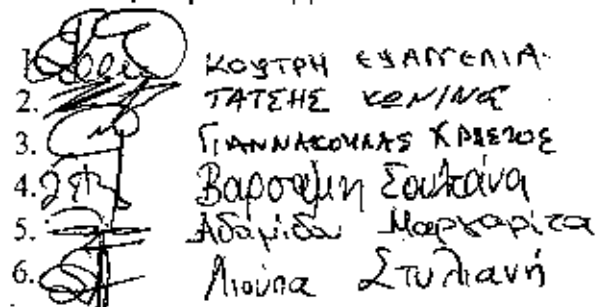 1. ΚΟΥΤΡΗ ΕΥΑΓΓΕΛΙΑ
2. ΤΑΤΣΗΣ ΚΩΝ/ΝΟΣ
3. ΓΙΑΝΝΑΚΟΥΛΑΣ ΧΡΗΣΤΟΣ
4. Βαρσαμη Σουλτάνα
5. Αδαμίδου Μαργαρίτα
6. Λιούπα Στυλιανή